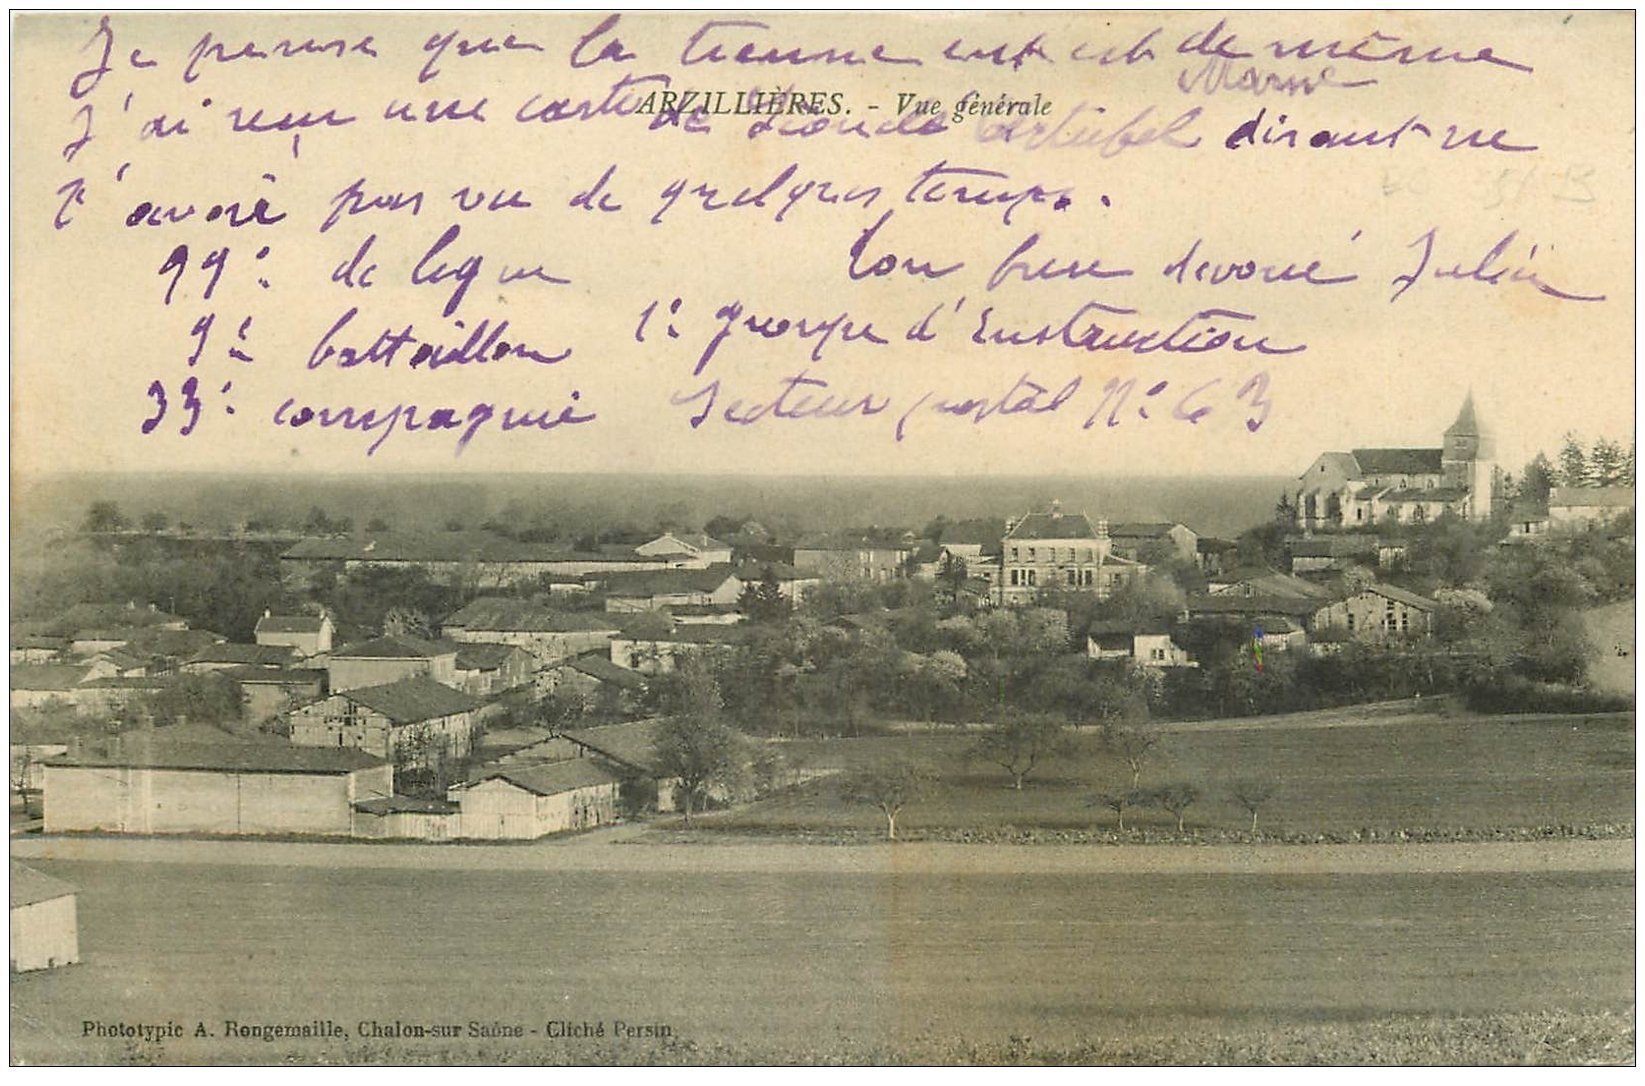 Je pense que la tienne est est de même
Marne
ARZILLIÈRES. - Vue générale
J'ai reçu une carte de disant ne
t'avoir pas vu de quelques temps.
Ton frère dévoué Julien
99e de ligne
9e battaillon 1e groupe d'Instruction
33e compagnie Secteur postal No 63
Phototypie A. Rongemaille, Chalon-sur Saône - Cliché Persin.